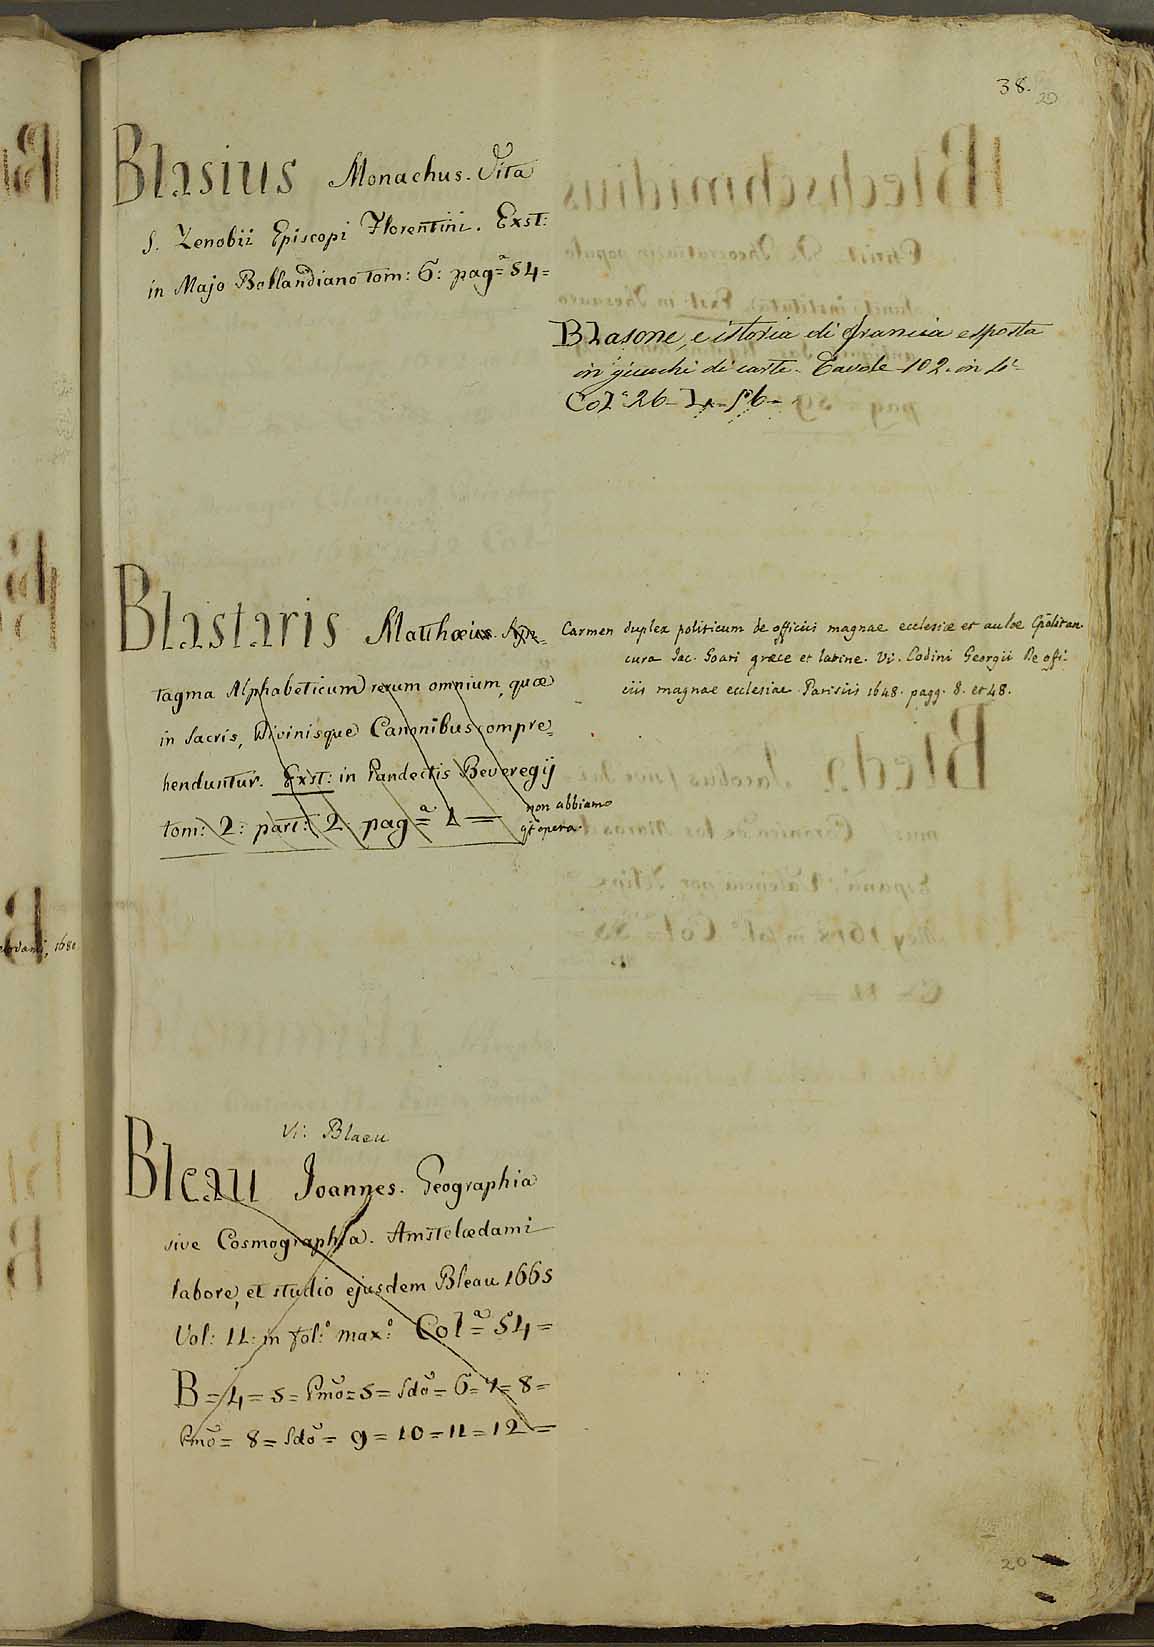 38.
20
Blasius Monachus. Vita
S. Zenobii Episcopi Florentini. Exst:
in Majo Bollandiano tom: 6: pag.ª 54=
Blasone, e istoria di Francia esposta
in giuochi di carte. Tavole 102. in 4º
Col.ª 26=
Blastaris Matthœus. Syn=
tagma Alphabeticum rerum omnium, quæ
in Sacris, Divinisque Canonibus compre=
henduntur. Exst: in Pandectis Beveregij
tom: 2: part: 2. pag.ª 1=
non abbiamo
qt opera.
Carmen duplex politicum de officiis magnae ecclesiæ et aulæ Cpolitan.
cura Jac. Goari græce et latine. Vi. Codini Georgii De offi-
ciis magnae ecclesiae. Parisiis 1648. pagg. 8. et 48.
Vi: Blaeu
Bleau Joannes. Geographia
sive Cosmographia. Amstelœdami
labore, et studio ejusdem Bleau 1665
Vol: 11: in fol.º max.º Col.ª 54=
B=4=5=Pmo=5=Sdo=6=7=8=
Pmo=8=Sdo=9=10=11=12=
1680
20